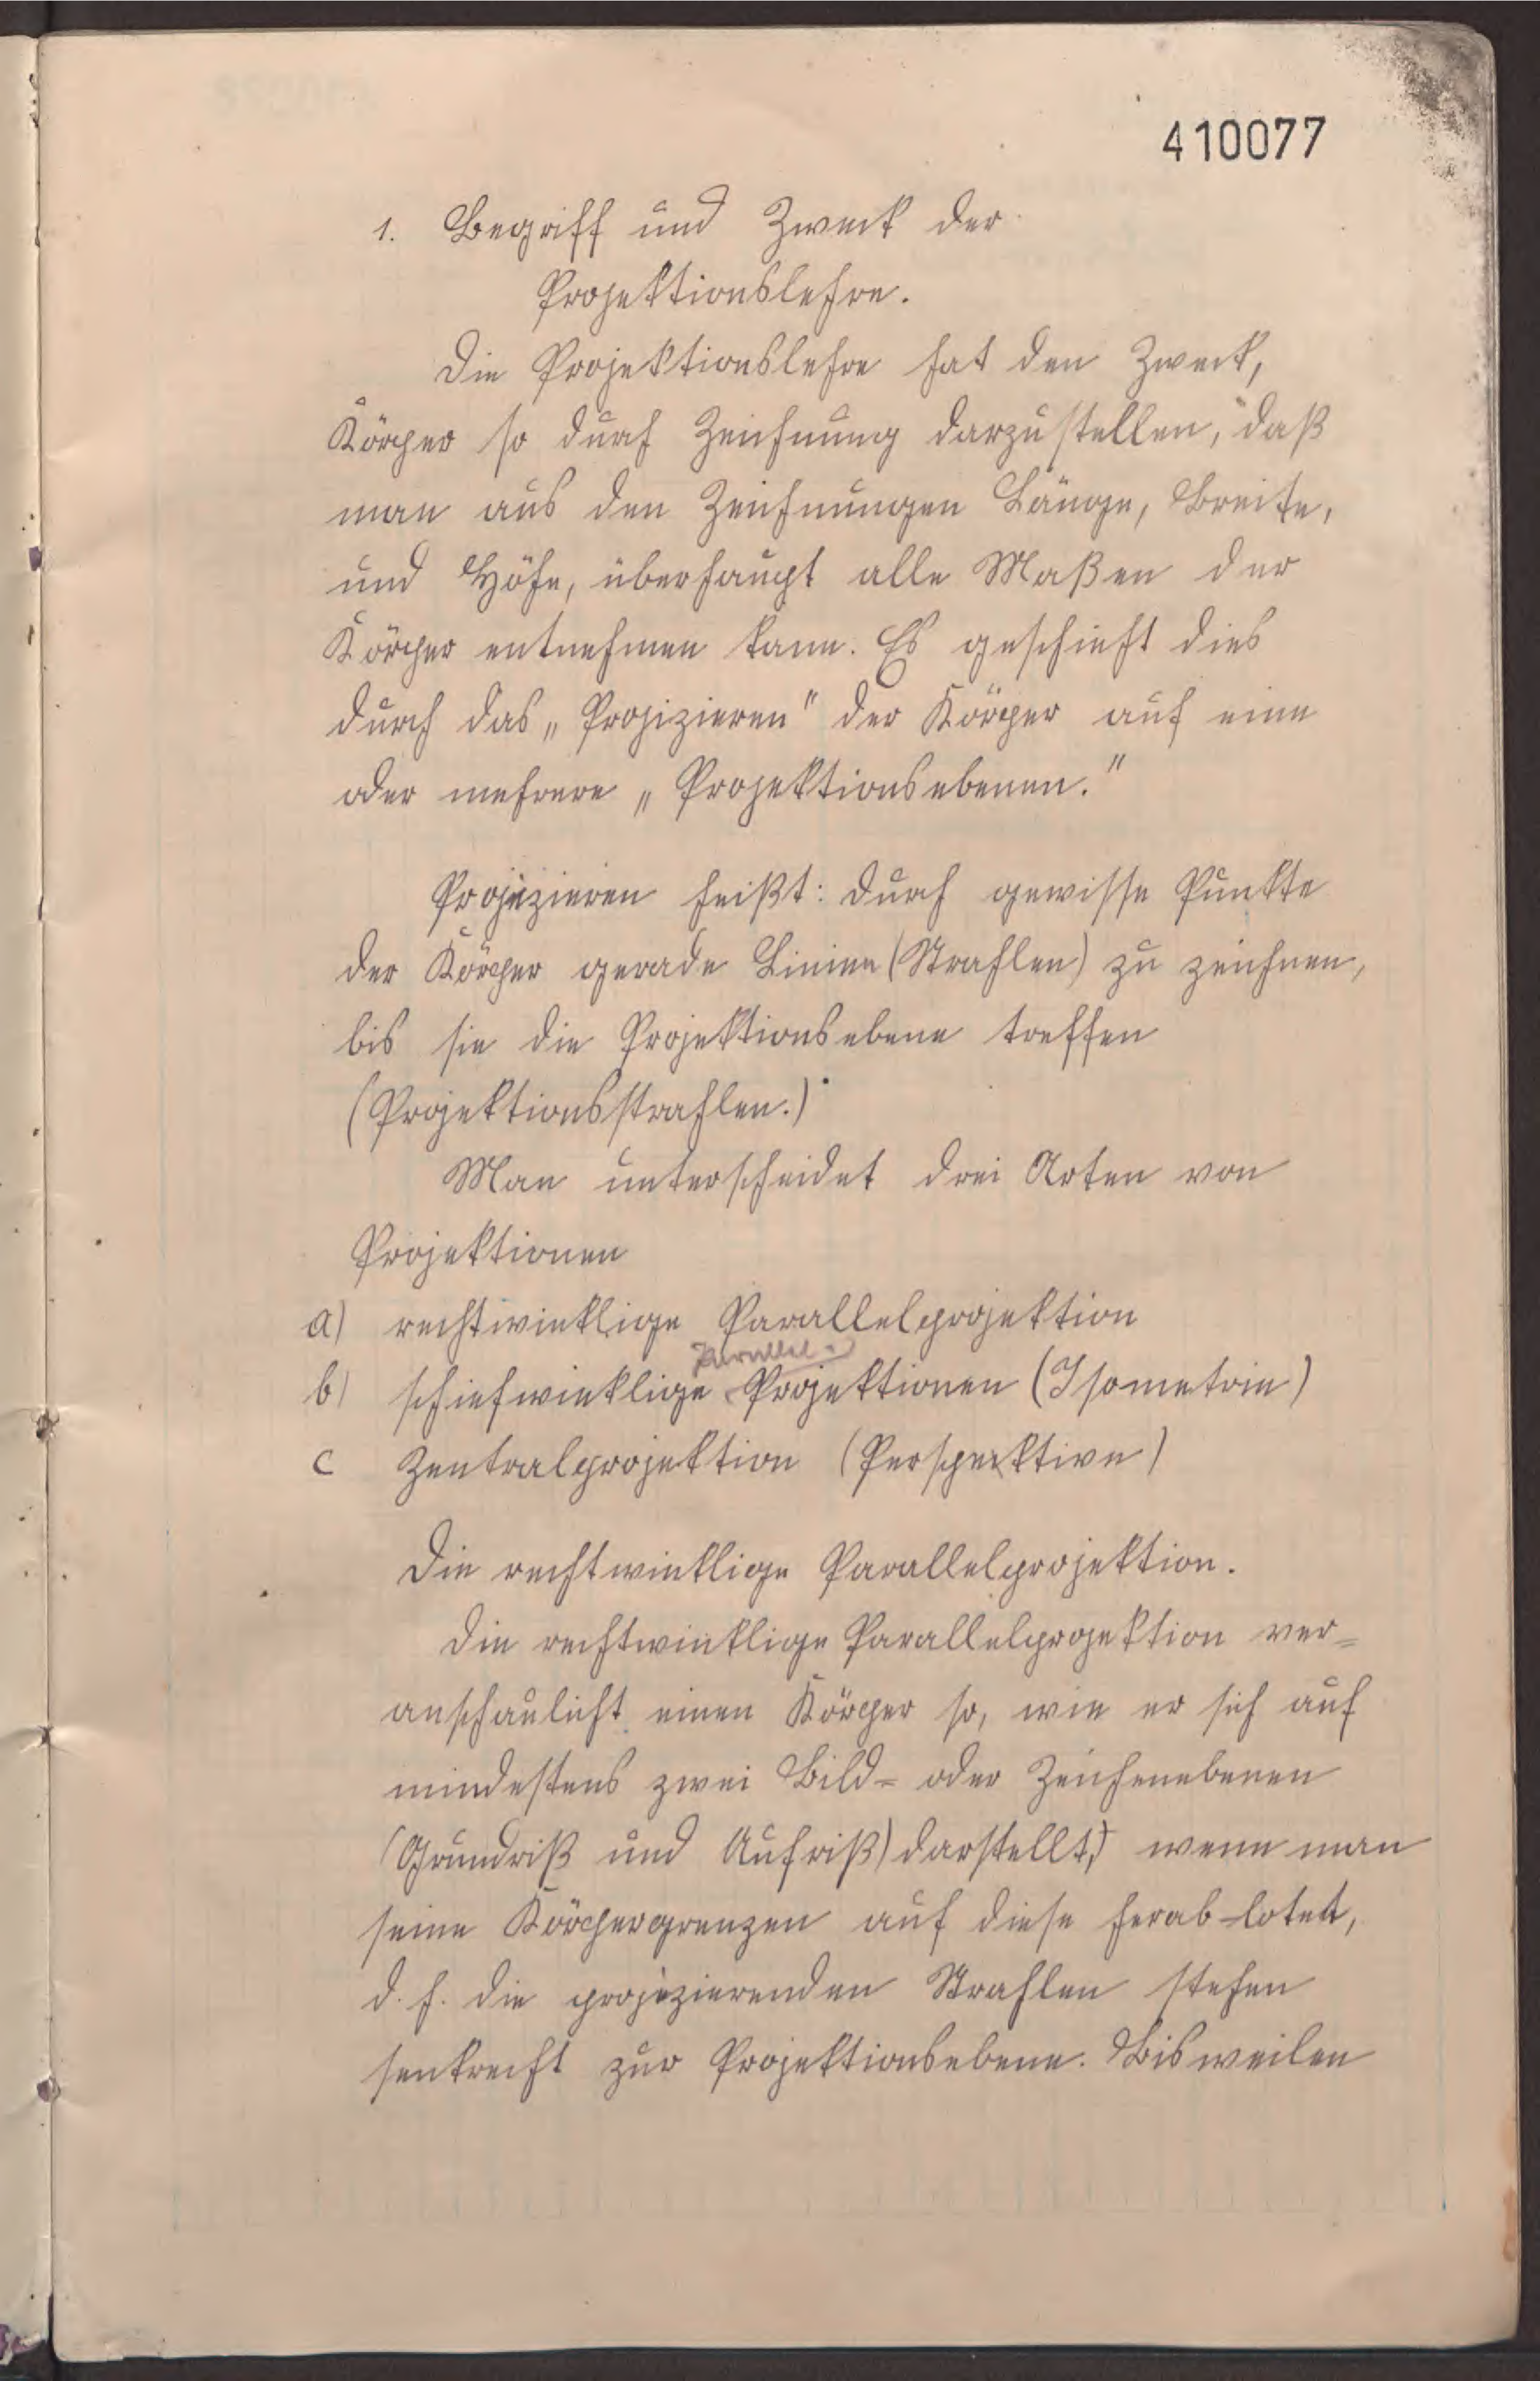 410077
1. Begriff und Zweck der
Projektionslehre.
Die Projektionslehre hat den Zweck,
Körper so durch Zeichnung darzustellen, daß
man aus den Zeichnungen Länge, Breite,
und Höhe, überhaupt alle Maßen der
Körper entnehmen kann. Es geschieht dies
durch das „Projizieren" der Körper auf eine
oder mehrere „Projektionsebenen."
Projizieren heißt: durch gewisse Punkte
der Körper gerade Linien (Strahlen) zu zeichnen,
bis sie die Projektionsebene treffen
(Projektionsstrahlen.)
Man unterscheidet drei Arten von
Projektionen
a) rechtwinklige Parallelprojektion
Parallel-
b) schiefwinklige Projektionen (Isometrie)
c Zentralprojektion (Perspektive)
Die rechtwinklige Parallelprojektion.
Die rechtwinklige Parallelprojektion ver=
anschaulicht einen Körper so, wie er sich auf
mindestens zwei Bild= oder Zeichenebenen
(Grundriß und Aufriß) darstellt, wenn man
seine Körpergrenzen auf diese herab-lotet,
d. h. die projizierenden Strahlen stehen
senkrecht zur Projektionsebene. Bisweilen